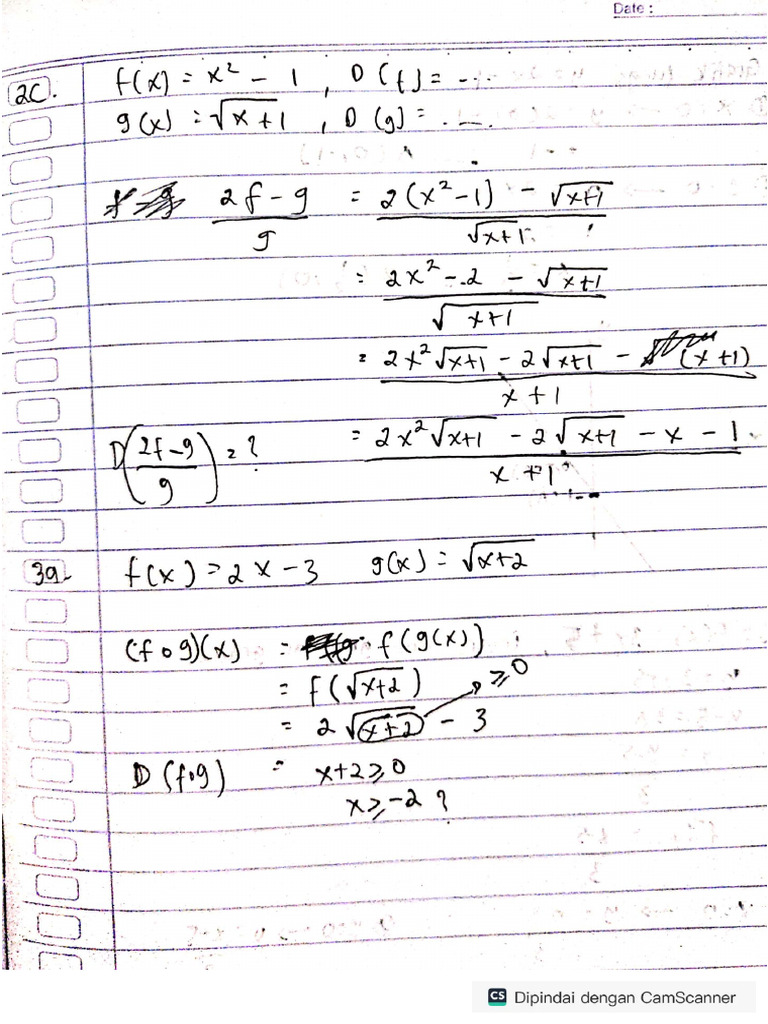 Date :
2c. f(x) = x² - 1 , D(f) = ...
g(x) = √(x+1) , D(g) = ...
(2f - g)/g = (2(x² - 1) - √(x+1))/√(x+1)
= (2x² - 2 - √(x+1))/√(x+1)
= (2x²√(x+1) - 2√(x+1) - (x+1))/(x+1)
D((2f-g)/g) = ? = (2x²√(x+1) - 2√(x+1) - x - 1)/(x+1)
3a. f(x) = 2x - 3 g(x) = √(x+2)
(f∘g)(x) = f(g(x))
= f(√(x+2)) ≥0
= 2√(x+2) - 3
D(f∘g) = x+2 ≥ 0
x ≥ -2 ?
CS Dipindai dengan CamScanner